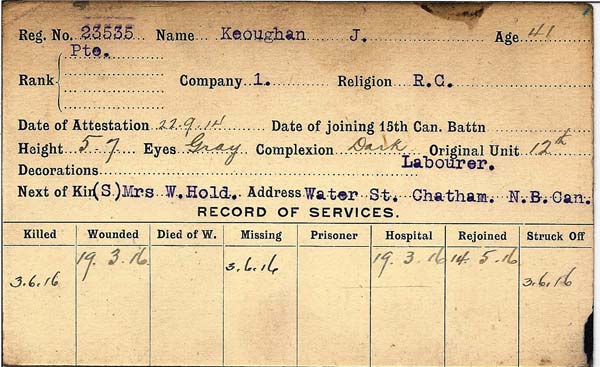 Reg. No. 23535 Name Keoughan J. Age 41
Pte.
Rank Company 1. Religion R.C.
Date of Attestation 22.9.14 Date of joining 15th Can. Battn
Height 5.7 Eyes Gray Complexion Dark Original Unit 12th
Labourer.
Decorations
Next of Kin (S) Mrs W.Hold. Address Water St. Chatham. N.B.Can.
RECORD OF SERVICES.
Killed Wounded Died of W. Missing Prisoner Hospital Rejoined Struck Off
19.3.16 3.6.16 19.3.16 14.5.16
3.6.16 3.6.16